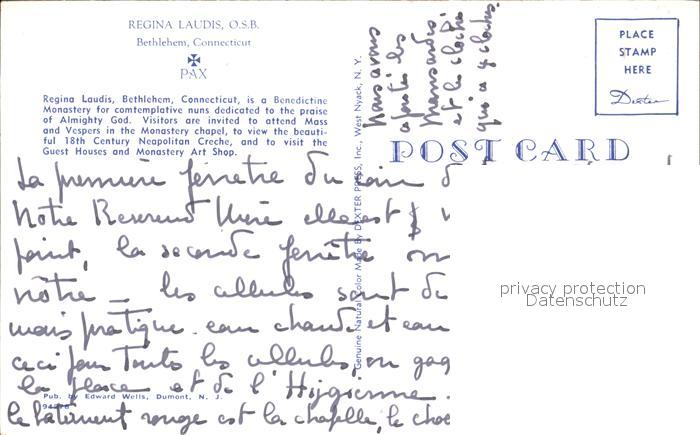 REGINA LAUDIS, O.S.B.
Bethlehem, Connecticut
PAX
Regina Laudis, Bethlehem, Connecticut, is a Benedictine
Monastery for comtemplative nuns dedicated to the praise
of Almighty God. Visitors are invited to attend Mass
and Vespers in the Monastery chapel, to view the beauti-
ful 18th Century Neapolitan Creche, and to visit the
Guest Houses and Monastery Art Shop.
La première fenêtre du coin d
Notre Reverend Mère elle est
point, la seconde fenêtre
nôtre _ les cellules sont de
mais pratique. eau chaude et eau
ceci pour toutes les cellules, on gag
la place et de l'Hygienne.
le bâtiment rouge est la chapelle, le choe
Pub. by Edward Wells, Dumont, N. J.
Genuine Natural Color Made By DEXTER PRESS, Inc., West Nyack, N. Y.
nous avons
ajouté les
mansardes
et le cloche
qui a y cloches.
PLACE
STAMP
HERE
Dexter
POST CARD
privacy protection
Datenschutz